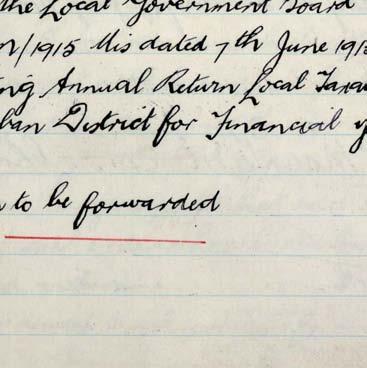 the Local Government Board
/1915 Mis dated 7th June 191
Annual Return Local Taxa
ban District for Financial y
to be forwarded